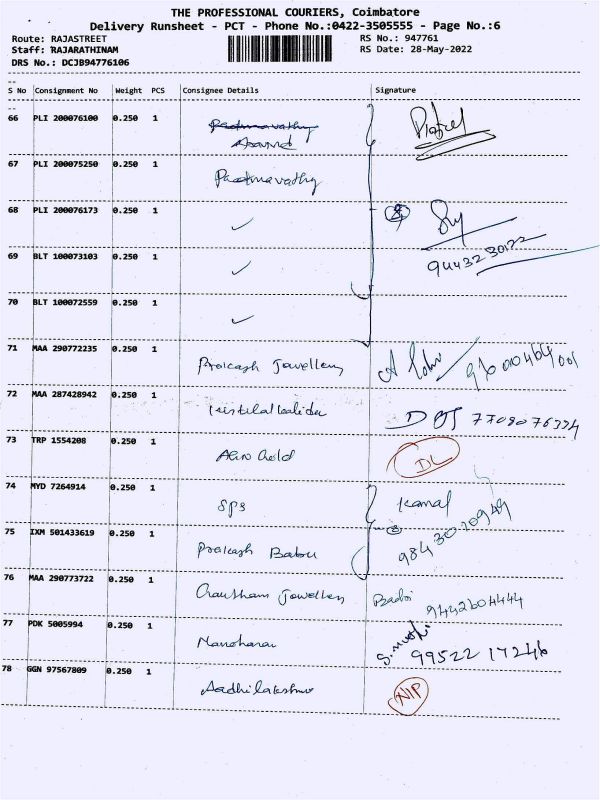 THE PROFESSIONAL COURIERS, Coimbatore
Delivery Runsheet - PCT - Phone No.:0422-3505555 - Page No.:6
Route: RAJASTREET RS No.: 947761
Staff: RAJARATHINAM RS Date: 28-May-2022
DRS No.: DCJB94776106
S No Consignment No Weight PCS Consignee Details Signature
66 PLI 200076100 0.250 1 Padmavathy
Anand
67 PLI 200075250 0.250 1 Padmavathy
68 PLI 200076173 0.250 1 ✓
69 BLT 100073103 0.250 1 ✓ 9443230122
70 BLT 100072559 0.250 1 ✓
71 MAA 290772235 0.250 1 Prakash Jewellery
72 MAA 287428942 0.250 1 7708076334
73 TRP 1554208 0.250 1 Gold DL
74 MYD 7264914 0.250 1 SPS Kamal
75 IXM 501433619 0.250 1 Prakash Babu 9843020949
76 MAA 290773722 0.250 1 Gautham Jewellery 9442604444
77 PDK 5005994 0.250 1 Manoharan 99522 17246
78 GGN 97567809 0.250 1 Aadhilakshmi NIP